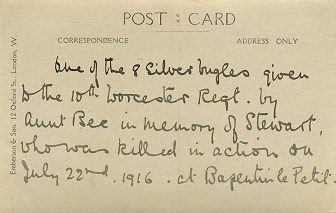 POST CARD
CORRESPONDENCE
ADDRESS ONLY
One of the 8 Silver bugles given
to the 10th Worcester Regt. by
Aunt Bee in memory of Stewart,
who was killed in action on
July 22nd. 1916. at Bazentin le Petit.
Emberson & Son, 12 Oxford St., London, W.